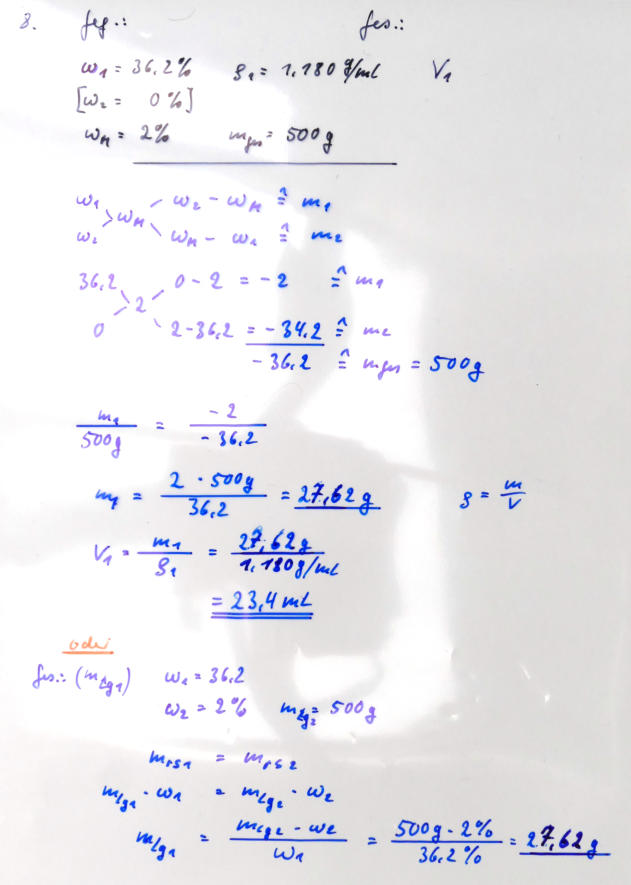 8. geg.: ges.:
ω₁ = 36,2% ϱ₁ = 1,180 g/ml V₁
[ω₂ = 0%]
ω_M = 2% m_ges = 500g
ω₁ ω₂ - ω_M ≙ m₁
ω_M
ω₂ ω_M - ω₁ ≙ m₂
36,2 0 - 2 = -2 ≙ m₁
2
0 2 - 36,2 = -34,2 ≙ m₂
-36,2 ≙ m_ges = 500g
m₁/500g = -2/-36,2
m₁ = 2 · 500g/36,2 = 27,62 g ϱ = m/V
V₁ = m₁/ϱ₁ = 27,62 g/1,180 g/ml
= 23,4 ml
oder
ges.: (m_Lg1) ω₁ = 36,2
ω₂ = 2% m_Lg2 = 500g
m_rS1 = m_rS2
m_Lg1 · ω₁ = m_Lg2 · ω₂
m_Lg1 = m_Lg2 · ω₂/ω₁ = 500g · 2%/36,2% = 27,62 g